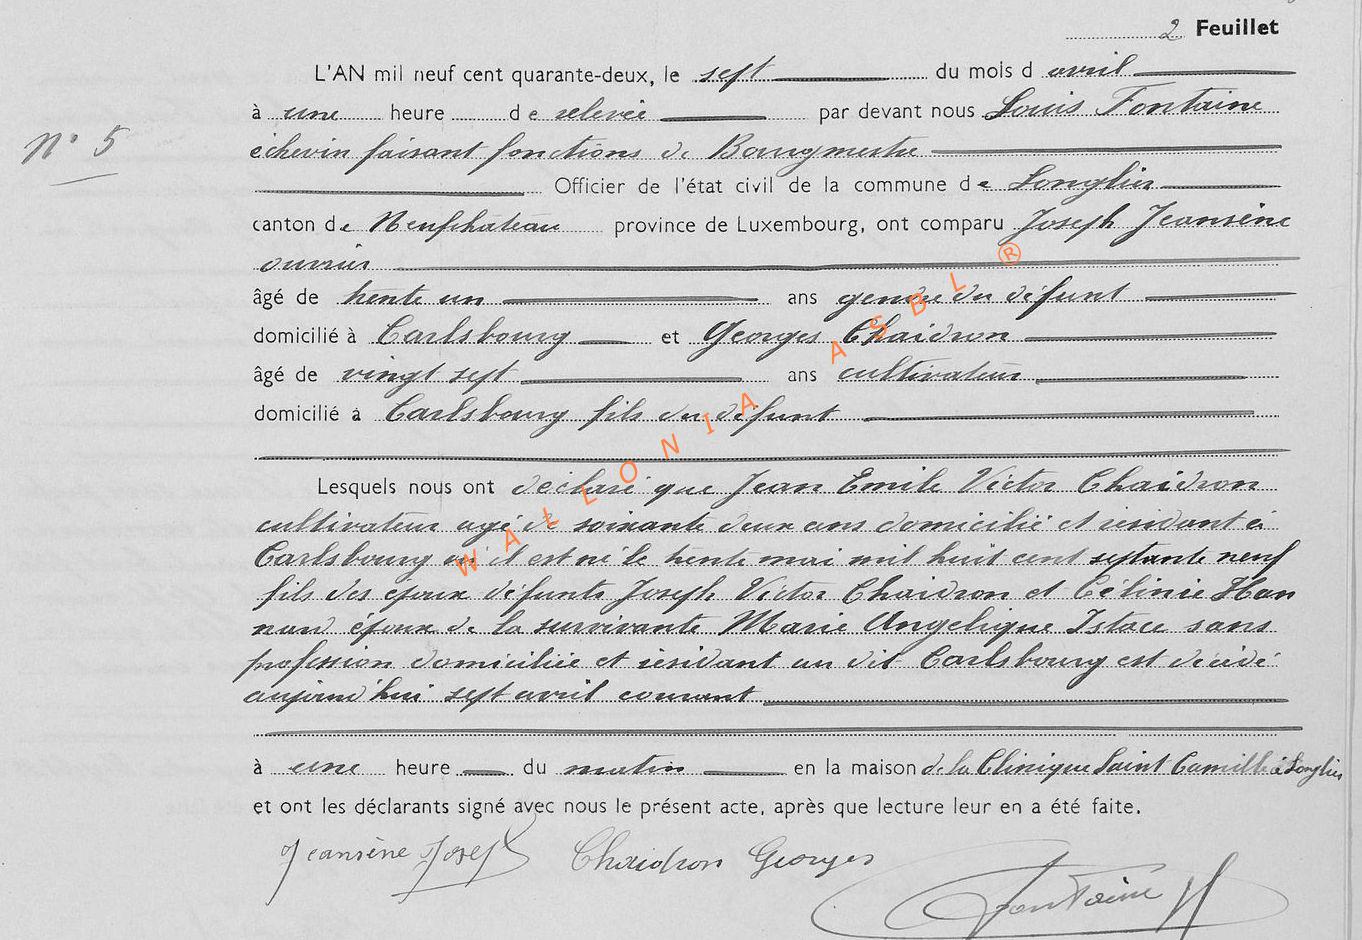 2 Feuillet
L'AN mil neuf cent quarante-deux, le sept du mois d avril
à une heure de relevée par devant nous Louis Fontaine
N° 5
échevin faisant fonctions de Bourgmestre
Officier de l'état civil de la commune de Longlier
canton de Neufchâteau province de Luxembourg, ont comparu Joseph Jeansène
ouvrier
âgé de trente un ans gendre du défunt
domicilié à Carlsbourg et Georges Chaidron
âgé de vingt sept ans cultivateur
domicilié à Carlsbourg fils du défunt
Lesquels nous ont déclaré que Jean Emile Victor Chaidron
cultivateur agé de soixante deux ans domicilié et résidant à
Carlsbourg où il est né le trente mai mil huit cent septante neuf
fils des époux défunts Joseph Victor Chaidron et Célinie Han
nard époux de la survivante Marie Angelique Istace sans
profession domiciliée et résidant au dit Carlsbourg est décédé
aujourd'hui sept avril courant
à une heure du matin en la maison de la Clinique Saint Camille à Longlier
et ont les déclarants signé avec nous le présent acte, après que lecture leur en a été faite.
Jeansène Joseph Chaidron Georges
Fontaine
WALLONIA ASBL ®